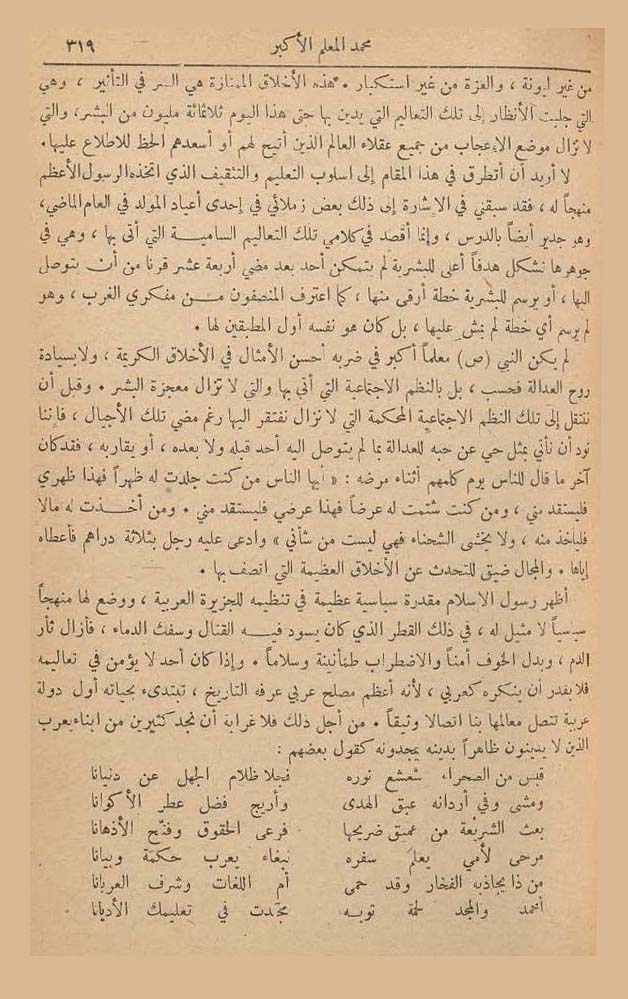 محمد المعلم الأكبر ٣١٩
من غير ليونة ، والعزة من غير استكبار . هذه الأخلاق الممتازة هي السر في التأثير ، وهي
التي جلبت الأنظار إلى تلك التعاليم التي يدين بها حتى هذا اليوم ثلاثمائة مليون من البشر، والتي
لا تزال موضع الاعجاب من جميع عقلاء العالم الذين أتيح لهم أو أسعدهم الحظ للاطلاع عليها .
لا أريد أن أتطرق في هذا المقام إلى اسلوب التعليم والتثقيف الذي اتخذه الرسول الأعظم
منهجاً له ، فقد سبقني في الاشارة إلى ذلك بعض زملائي في إحدى أعياد المولد في العام الماضي،
وهو جدير أيضاً بالدرس ، وإنما أقصد في كلامي تلك التعاليم السامية التي أتى بها ، وهي في
جوهرها تشكل هدفاً أعلى للبشرية لم يتمكن أحد بعد مضي أربعة عشر قرنا من أن يتوصل
اليها ، أو يرسم للبشرية خطة أرقى منها ، كما اعترف المنصفون من مفكري الغرب ، وهو
لم يرسم أي خطة لم يمش عليها ، بل كان هو نفسه أول المطبقين لها .
لم يكن النبي (ص) معلماً أكبر في ضربه أحسن الأمثال في الأخلاق الكريمة ، ولا بسيادة
روح العدالة فحسب ، بل بالنظم الاجتماعية التي أتى بها والتي لا تزال معجزة البشر . وقبل أن
ننتقل إلى تلك النظم الاجتماعية المحكمة التي لا نزال نفتقر اليها رغم مضي تلك الأجيال ، فاننا
نود أن نأتي بمثل حي عن حبه للعدالة بما لم يتوصل اليه أحد قبله ولا بعده ، أو يقاربه ، فقد كان
آخر ما قال للناس يوم كلمهم أثناء مرضه : « أيها الناس من كنت جلدت له ظهراً فهذا ظهري
فليستقد مني ، ومن كنت شتمت له عرضاً فهذا عرضي فليستقد مني . ومن أخذت له مالا
فليأخذ منه ، ولا يخشى الشحناء فهي ليست من شأني » وادعى عليه رجل بثلاثة دراهم فأعطاه
إياها . والمجال ضيق للتحدث عن الأخلاق العظيمة التي اتصف بها .
أظهر رسول الاسلام مقدرة سياسية عظيمة في تنظيمه للجزيرة العربية ، ووضع لها منهجاً
سياسياً لا مثيل له ، في ذلك القطر الذي كان يسود فيه القتال وسفك الدماء ، فأزال ثأر
الدم ، وبدل الخوف أمناً والاضطراب طمأنينة وسلاماً . وإذا كان أحد لا يؤمن في تعاليمه
فلا يقدر أن ينكره كعربي ، لأنه أعظم مصلح عربي عرفه التاريخ ، تبتدىء بحياته أول دولة
عربية تتصل معالمها بنا اتصالا وثيقاً . من أجل ذلك فلا غرابة أن نجد كثيرين من ابناء يعرب
الذين لا يدينون ظاهراً بدينه يمجدونه كقول بعضهم :
قبس من الصحراء شعشع نوره فجلا ظلام الجهل عن دنيانا
ومشى وفي أردانه عبق الهدى وأريج فضل عطر الأكوانا
بعث الشريعة من عميق ضريحها فرعى الحقوق وفتّح الأذهانا
مرحى لأمي يعلم سفره نبغاء يعرب حكمة وبيانا
من ذا يجاذبه الفخار وقد حمى أم اللغات وشرف العربانا
أحمد والمجد لحمة ثوبه مجّدت في تعليمك الأديانا